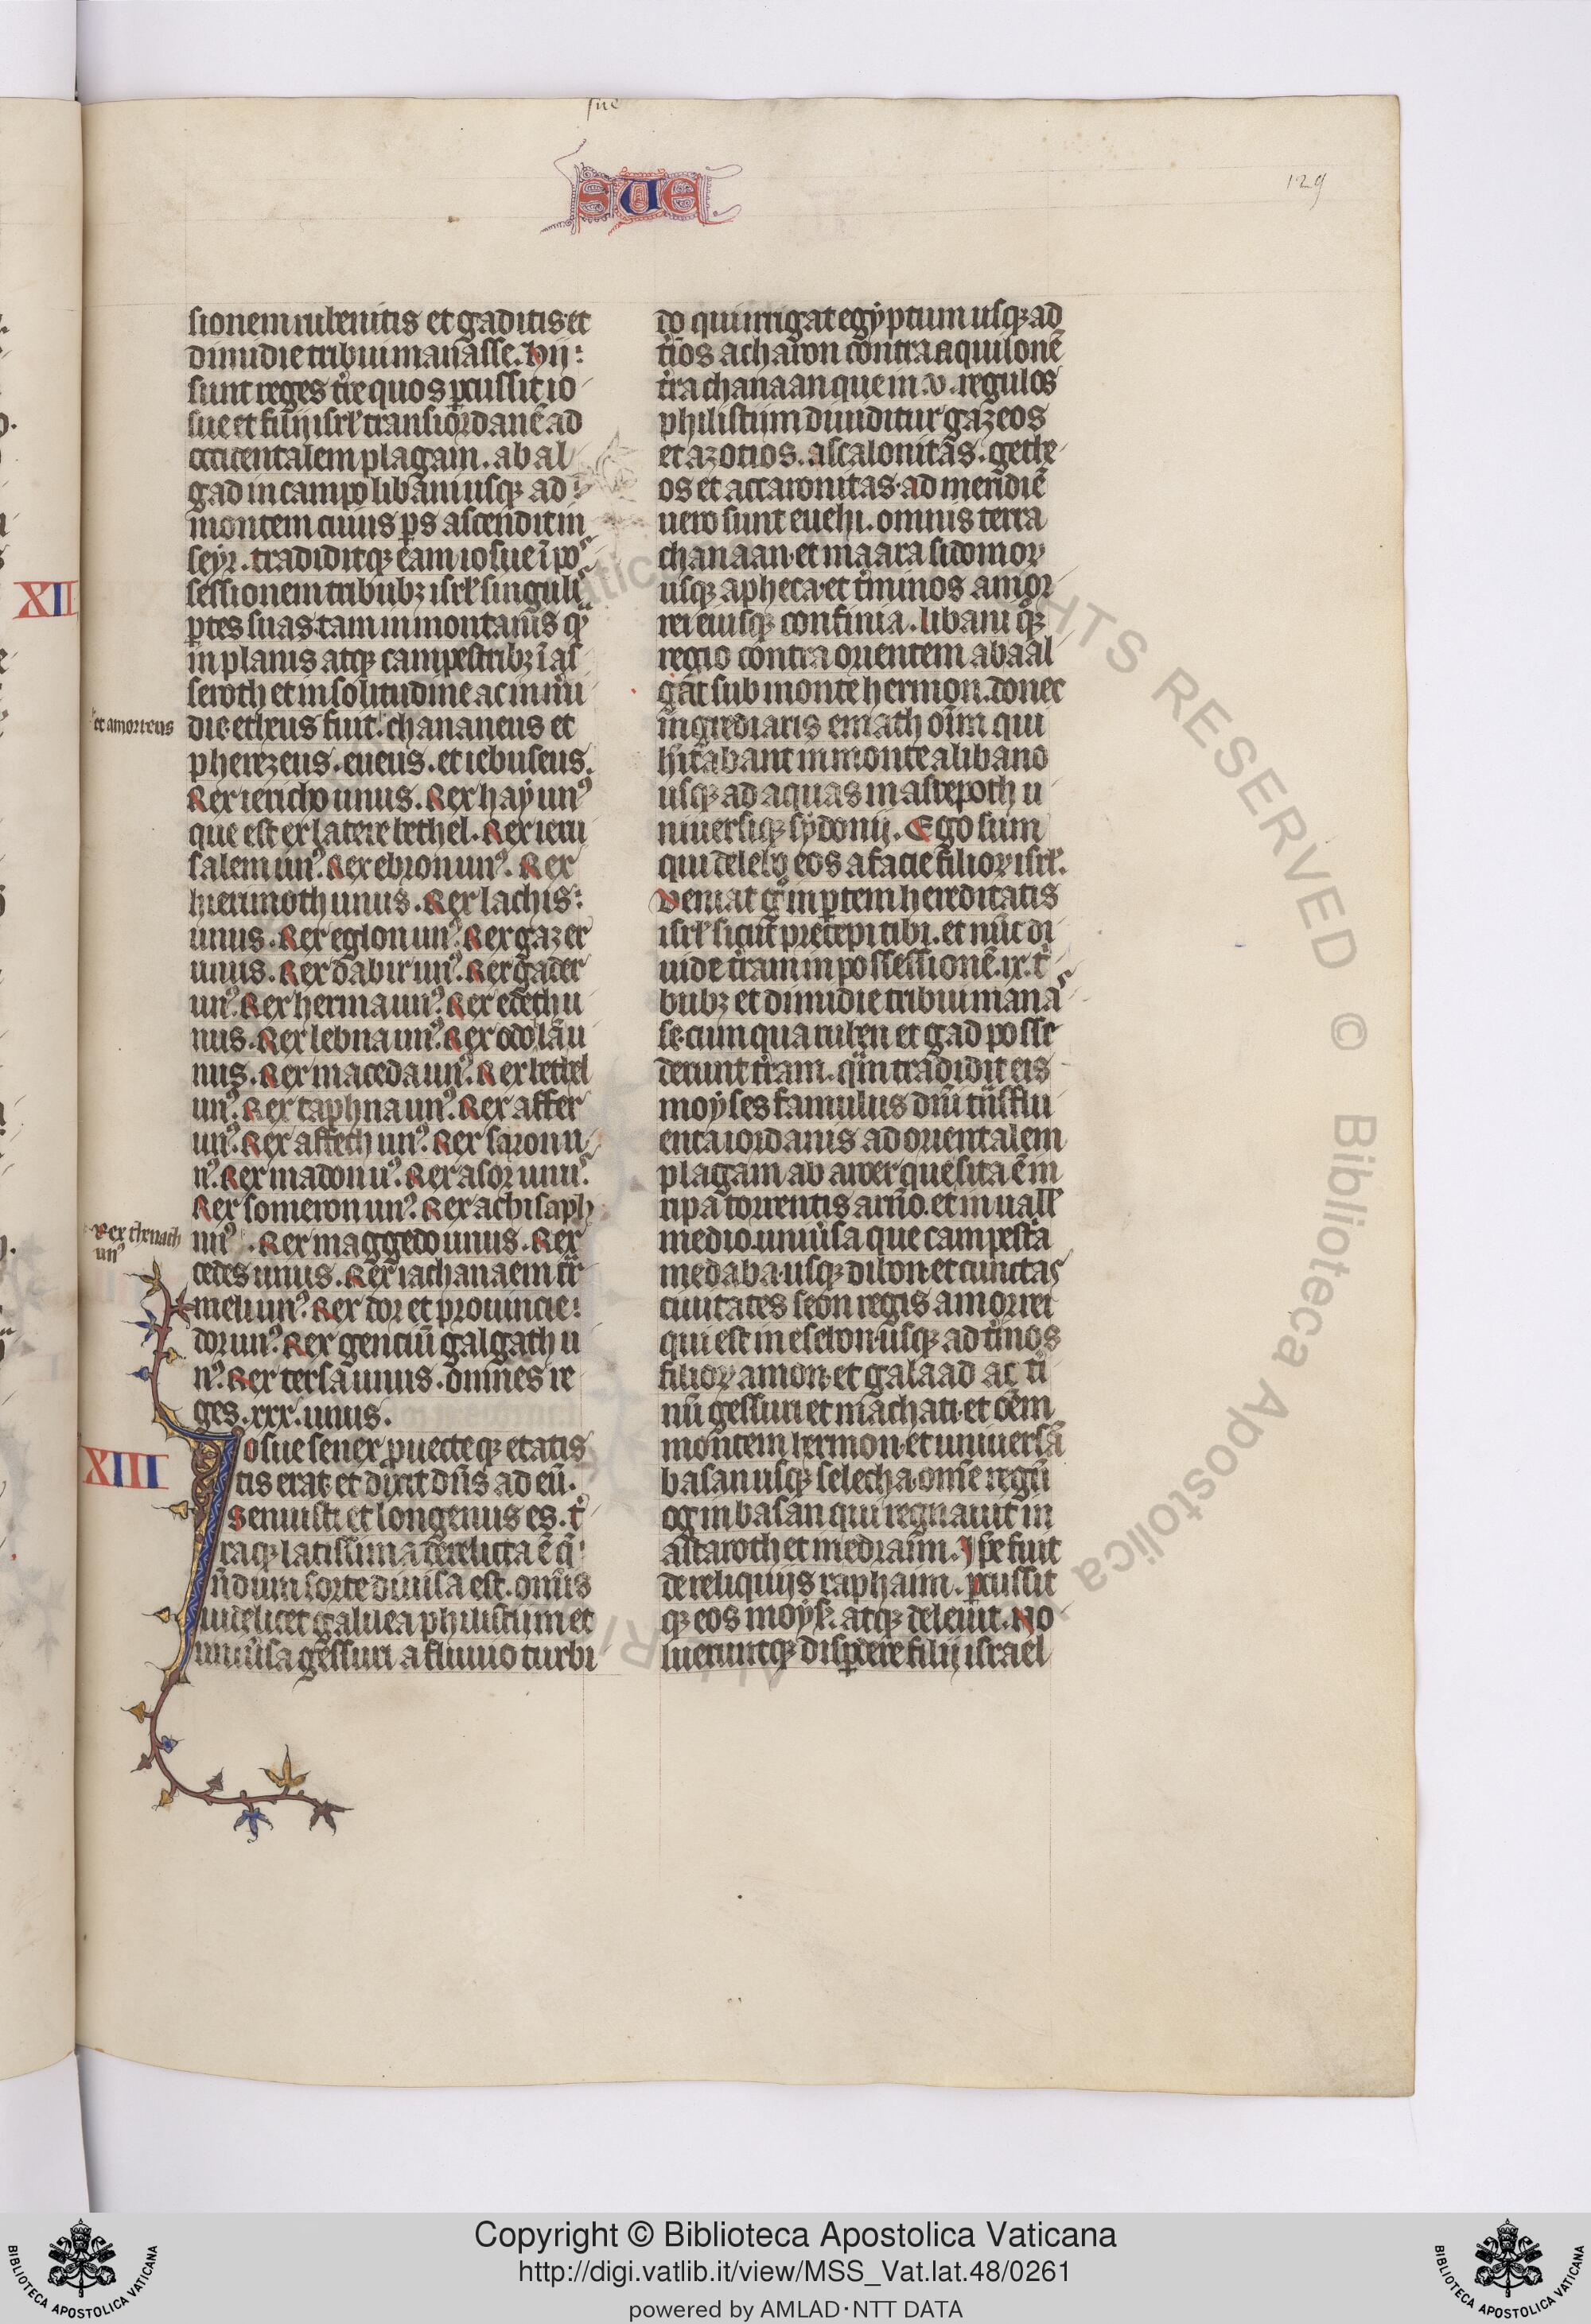 sue
SUE
129
sionem rubenitis et gaditis et
dimidie tribui manasse. Hij
sunt reges tre quos pcussit io
sue et filij isrl transiordanē ad
occidentalem plagam. ab al
gad in campo libani usqꝫ ad
montem cuius ps ascendit in
seyr. tradiditqꝫ eam iosue ī pos
sessionem tribubꝫ isrl singulis
ptes suas tam in montanis qͣ
in planis atqꝫ campestribꝫ ī as
seroth et in solitudine ac in mͥi
et amorreus
die. etheus fuit. chananeus et
pherezeus. eueus. et iebuseus.
XII
Rex iericho unus. Rex hay un᷒
que est ex latere bethel. Rex ieru
salem un᷒. Rex ebron un᷒. Rex
hierimoth unus. Rex lachis
unus. Rex eglon un᷒. Rex gazer
unus. Rex dabir un᷒. Rex gader
un᷒. Rex herma un᷒. Rex edeth u
nus. Rex lebna un᷒. Rex odolā u
nus. Rex maceda un᷒. Rex bethel
un᷒. Rex taphna un᷒. Rex affer
un᷒. Rex affech un᷒. Rex saron u
n᷒. Rex madon u᷒. Rex asor unu᷒.
Rex someron un᷒. Rex achisaph
Rex thenach
un᷒
un᷒. Rex maggedo unus. Rex
cedes unus. Rex iachanaem cͣr
meli un᷒. Rex dor et prouincie
dor un᷒. Rex genciū galgath u
n᷒. Rex tersa unus. omnes re
ges. xxx. unus.
XIII
Iosue senex puecteqꝫ etatis
tis erat. et dixit dn̄s ad eū.
Senuisti et longeuus es. t᷒
raqꝫ latissima derelicta ē q̄
n̄dum sorte diuisa est. omīs
uidelicet galilea philistiim et
uniu᷒sa gessuri a fluuio turbi
do qui irrigat egyptum usqꝫ ad
t᷒ios acharon contra aquilonē
t᷒ra chanaan que in .v. regulos
philistiim diuiditur gazeos
et azotios. ascalonitas. gethe
os et accaronitas. ad meridiē
uero sunt euehi. omnis terra
chanaan. et maara sidonioꝝ
usqꝫ apheca. et t᷒minos amor
rei eiusqꝫ confinia. libani qͦꝫ
regio contra orientem abaal
gat sub monte hermon. donec
ingrediaris emath oīm qui
hītabant in monte a libano
usqꝫ ad aquas mastrepoth u
niuersiqꝫ sydonij. Ego sum
qui delebo eos a facie filioꝝ isrl.
Veniat gͦ in ptem hereditatis
isrl sicut precepi tibi. et nūc di
uide t᷒ram in possessionē. ix. tͥ
bubꝫ et dimidie tribui manas
se. cum qua ruben et gad posse
derunt t᷒ram. qͣm tradidit eis
moyses famulus dn̄i tͣnsflu
enta iordanis ad orientalem
plagam ab aroer que sita ē in
ripa torrentis arno. et in uall᷒
medio. uniu᷒sa que campestͥa
medaba. usqꝫ dibon. et cunctas
ciuitates seon regis amorrei
qui est in esebon. usqꝫ ad t᷒inos
filioꝝ amon. et galaad ac t᷒i
nū gessuri et machati. et oēm
montem hermon. et uniuersā
basan usqꝫ selecha. omne regnū
og in basan qui regnauit in
astaroth et in edraim. Ipse fuit
de reliquijs raphaim. pcussit
qꝫ eos moys̄. atqꝫ deleuit. No
lueruntqꝫ dispdere filij israel
Copyright © Biblioteca Apostolica Vaticana
http://digi.vatlib.it/view/MSS_Vat.lat.48/0261
powered by AMLAD·NTT DATA